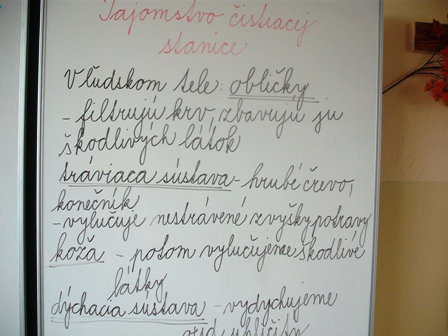 Tajomstvo čistiacej
stanice
V ľudskom tele: obličky
- filtrujú krv, zbavujú ju
škodlivých látok
tráviaca sústava - hrubé črevo,
konečník
- vylučuje nestrávené zvyšky potravy
koža - potom vylučujeme škodlivé
látky
dýchacia sústava - vydychujeme
oxid uhličitý